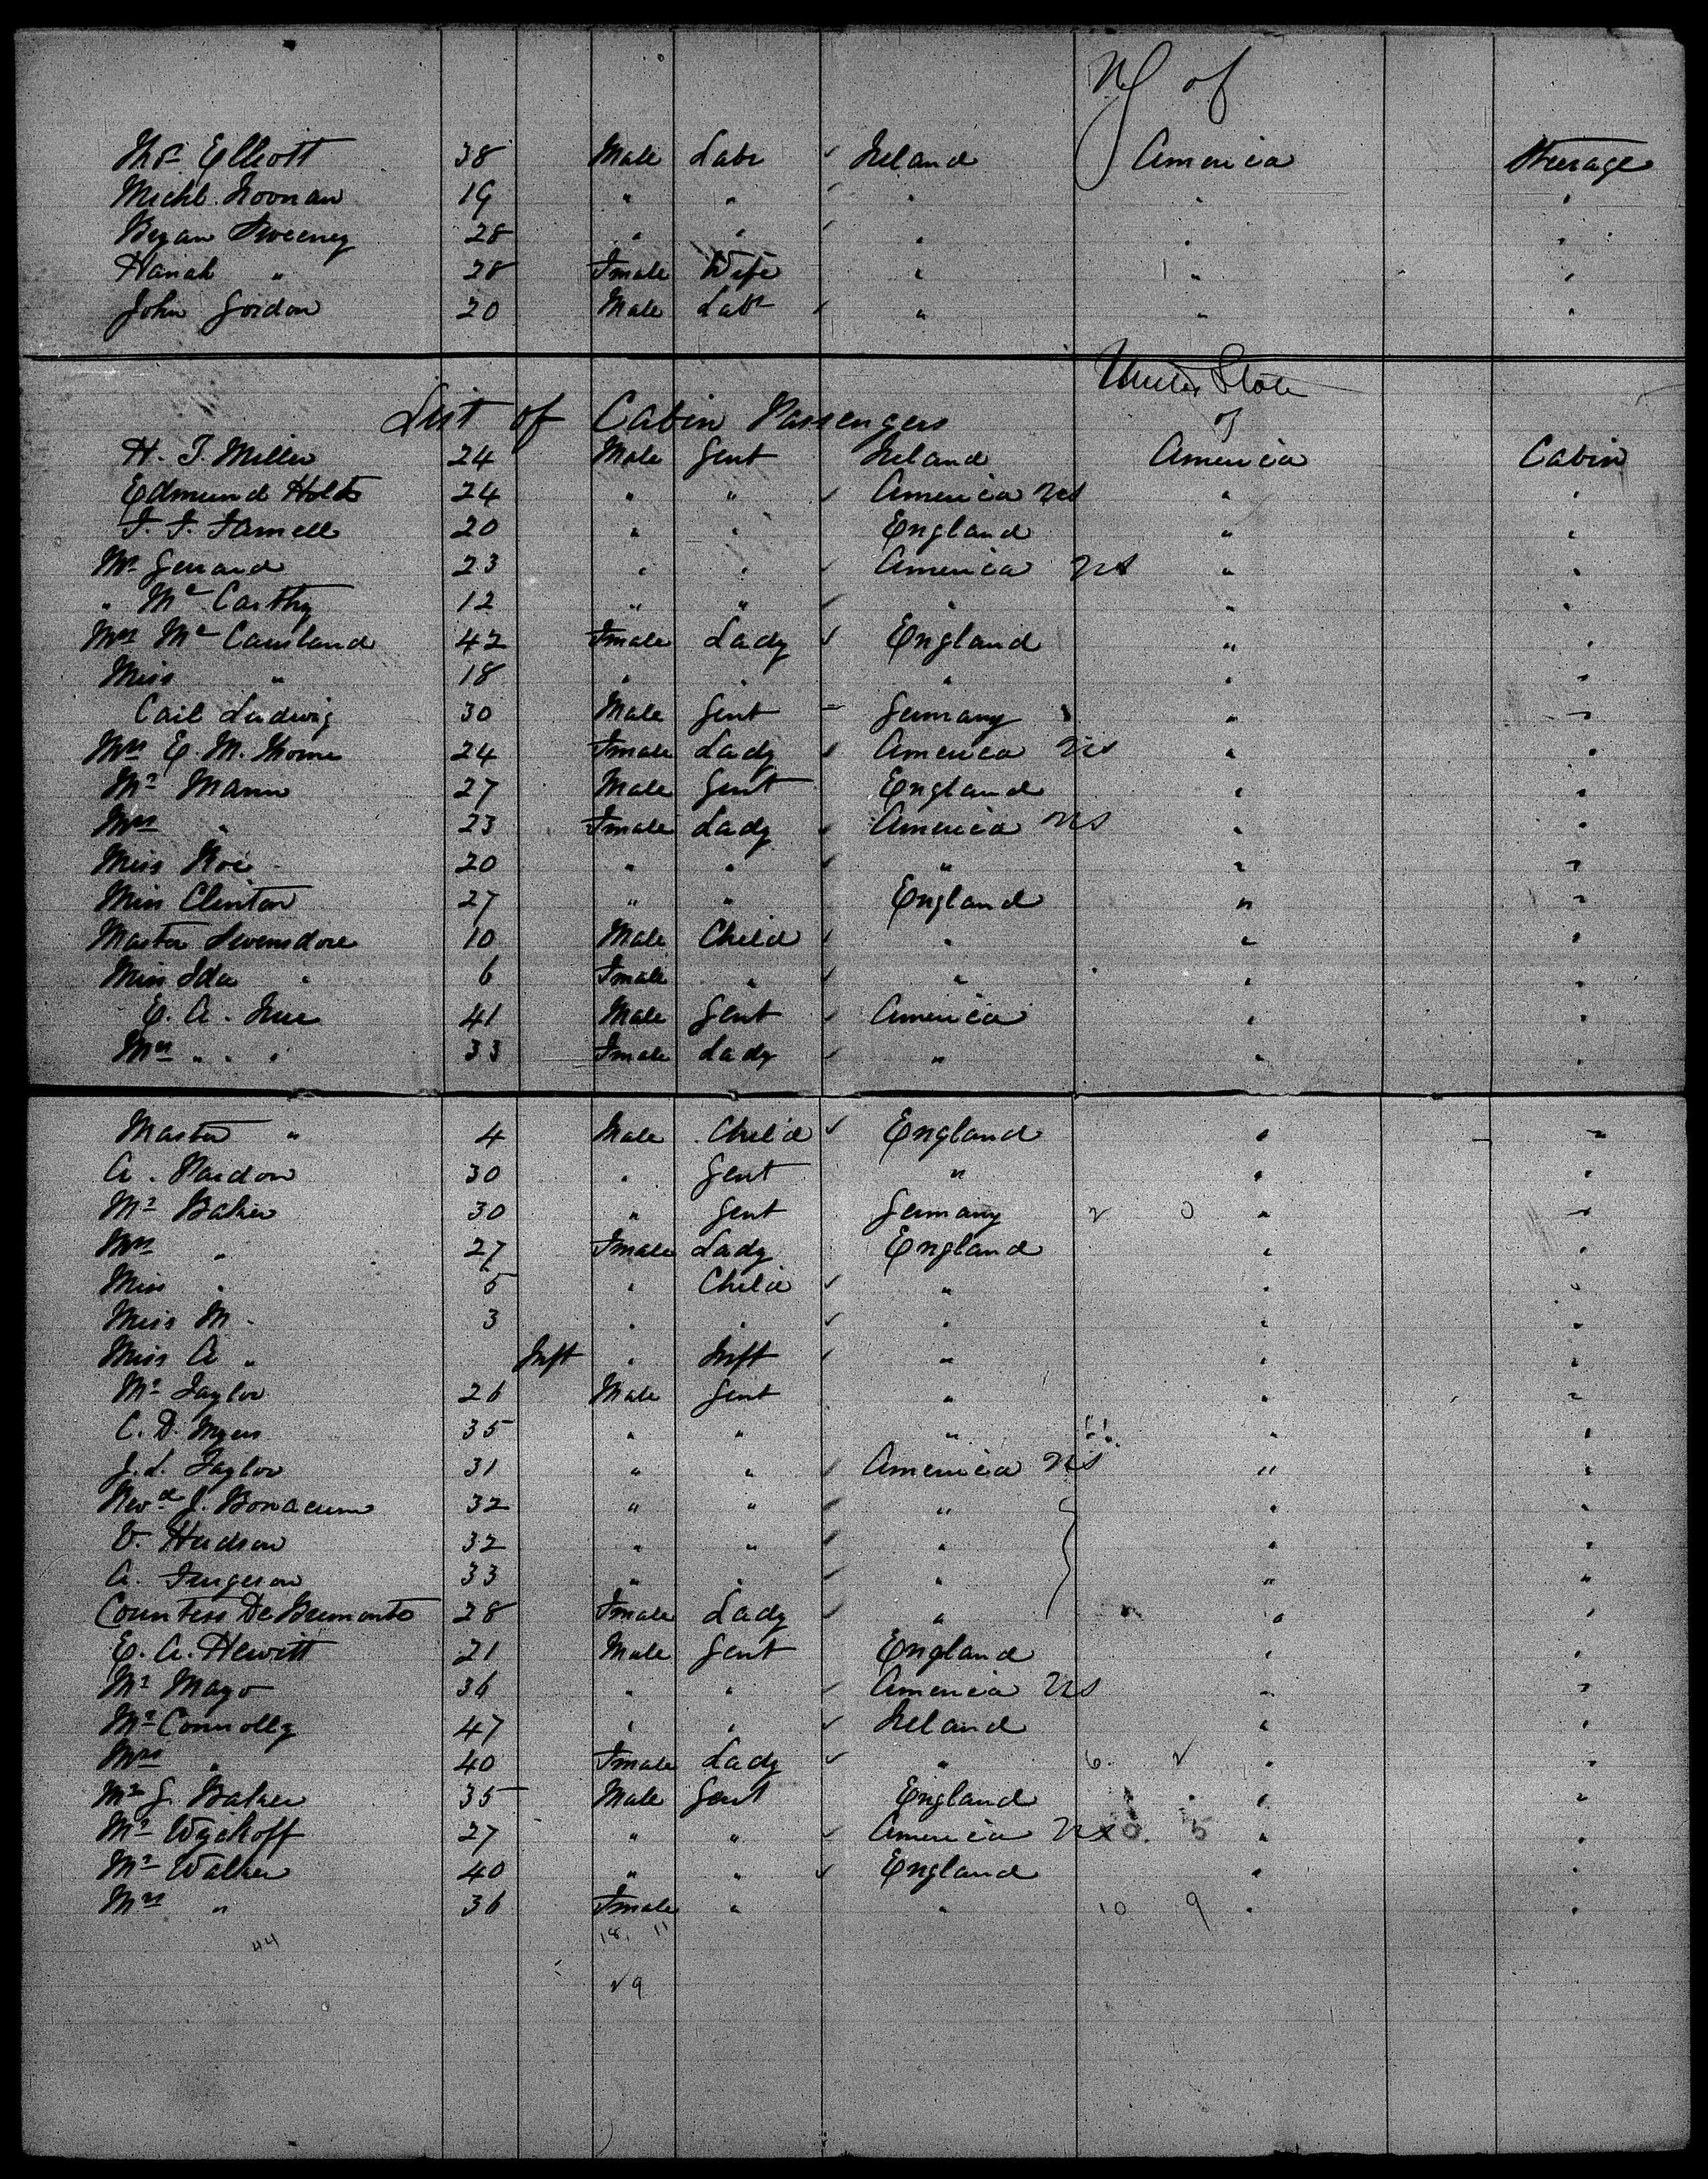 of
Thos Elliott 38 Male Labr Ireland America Steerage
Michl. Noonan 19 " " " " "
Bryan Sweeney 28 " " " " "
Hanah " 28 Fmale Wife " " "
John Gordon 20 Male Labr " " "
United State
List of Cabin Passengers of
H. T. Miller 24 Male Gent Ireland America Cabin
Edmund Holt 24 " " America US " "
F. F. Farnell 20 " " England " "
Mr Gerrard 23 " " America US " "
" Mc Carthy 12 " " " " "
Mrs Mc Causland 42 Fmale Lady England " "
Miss " 18 " " " " "
Carl Ludwig 30 Male Gent Germany " "
Mrs E. M. 24 Fmale Lady America US " "
Mr Mann 27 Male Gent England " "
Mrs " 23 Fmale Lady America US " "
Miss Roe 20 " " " " "
Miss Clinton 27 " " England " "
Master 10 Male Child " " "
Miss Ida " 6 Fmale " " " "
E. A. 41 Male Gent America " "
Mrs " " " 33 Fmale Lady " " "
Master " 4 Male Child England " "
A. Pardon 30 " Gent " " "
Mr Baker 30 " Gent Germany " "
Mrs " 27 Fmale Lady England " "
Miss " 5 " Child " " "
Miss M " 3 " " " " "
Miss A " Inft " Inft " " "
Mr Taylor 26 Male Gent " " "
C. D. Myers 35 " " " " "
J. L. Taylor 31 " " America US " "
Revd J. Bonacum 32 " " " " "
V. Hudson 32 " " " " "
A. Furgeson 33 " " " " "
Countess De Bremonto 28 Fmale Lady " " "
E. A. Hewitt 21 Male Gent England " "
Mr Mayo 36 " " America US " "
Mr Connolly 47 " " Ireland " "
Mrs " 40 Fmale Lady " 6. " "
Mr J. Baker 35 Male Gent England " "
Mr Wyckoff 27 " " America US 5 " "
Mr Walker 40 " " England " "
Mrs " 36 Fmale " " 10 9 " "
44 18. 11